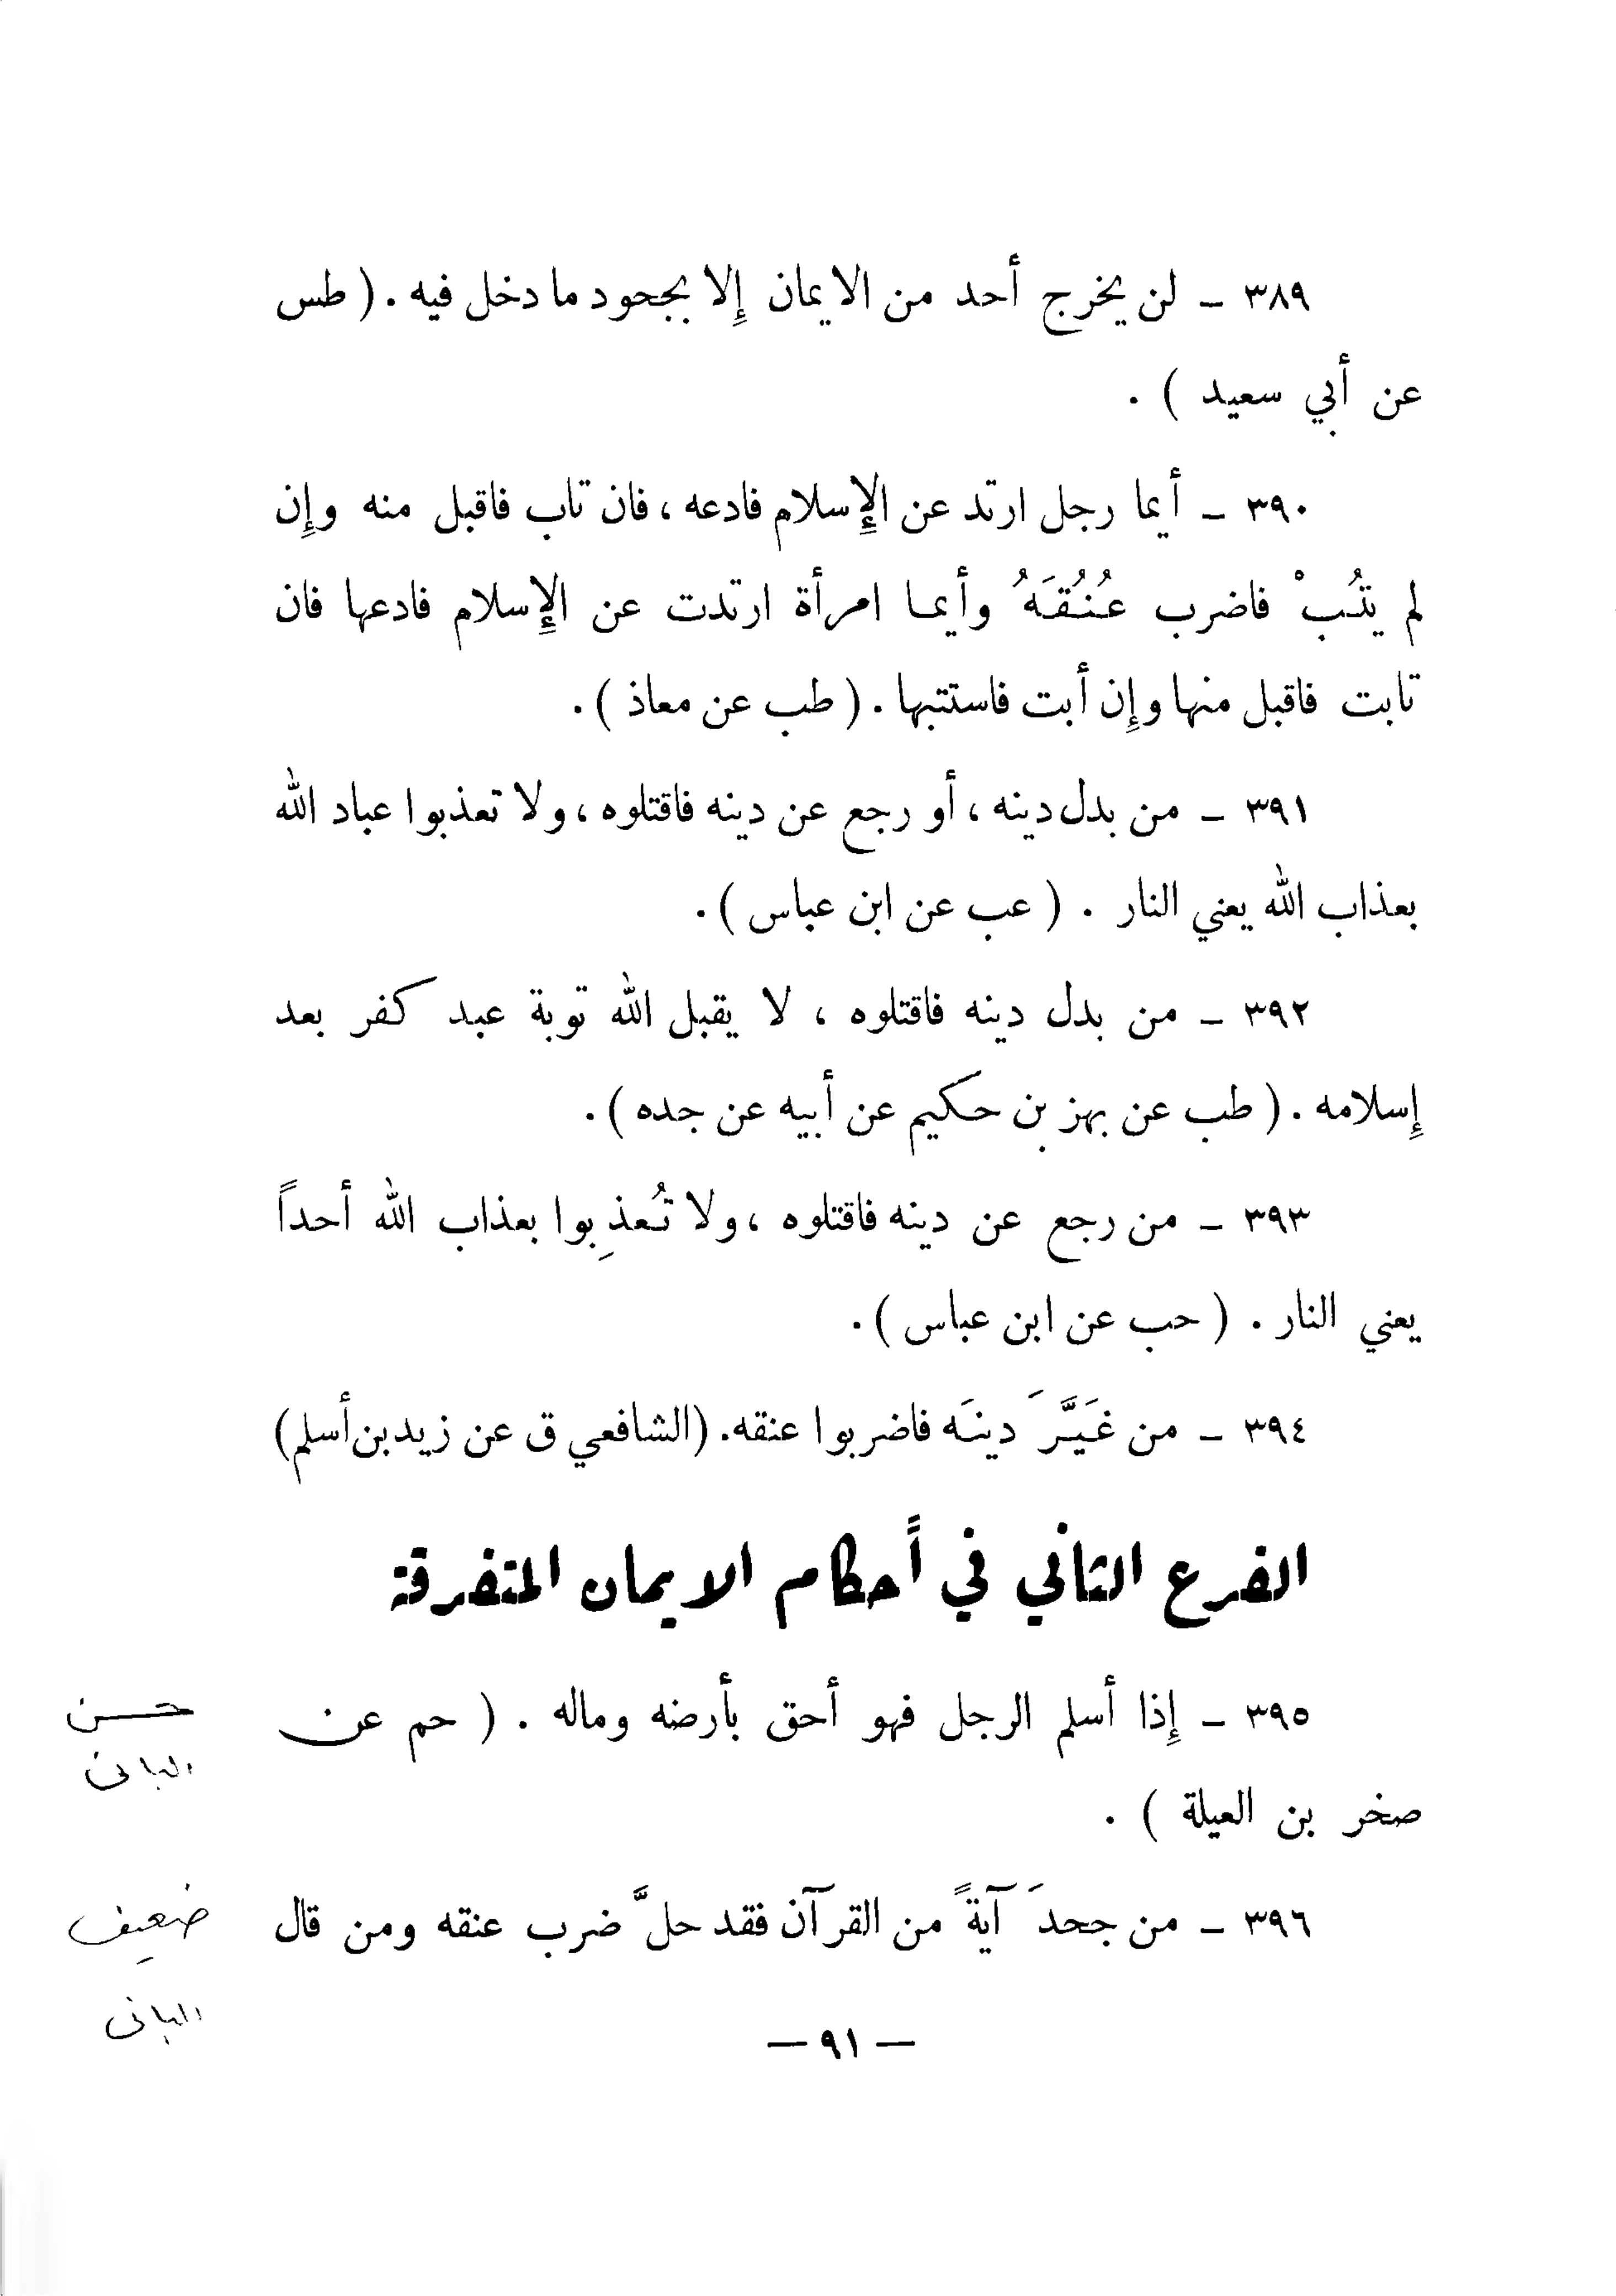 ٣٨٩ ـ لن يخرج أحد من الايمان إِلا بجحود ما دخل فيه . ( طس
عن أبي سعيد ) .
٣٩٠ ـ أيما رجل ارتد عن الإِسلام فادعه ، فان تاب فاقبل منه وإِن
لم يتُبْ فاضرب عُنُقَهُ وأيما امرأة ارتدت عن الإِسلام فادعها فان
تابت فاقبل منها وإِن أبت فاستتبها . ( طب عن معاذ ) .
٣٩١ ـ من بدل دينه ، أو رجع عن دينه فاقتلوه ، ولا تعذبوا عباد الله
بعذاب الله يعني النار . ( عب عن ابن عباس ) .
٣٩٢ ـ من بدل دينه فاقتلوه ، لا يقبل الله توبة عبد كفر بعد
إِسلامه . ( طب عن بهز بن حكيم عن أبيه عن جده ) .
٣٩٣ ـ من رجع عن دينه فاقتلوه ، ولا تُعذِبوا بعذاب الله أحداً
يعني النار . ( حب عن ابن عباس ) .
٣٩٤ ـ من غَيَّرَ دينَه فاضربوا عنقه. (الشافعي ق عن زيد بن أسلم)
الفرع الثاني في أحكام الايمان المتفرقة
٣٩٥ ـ إِذا أسلم الرجل فهو أحق بأرضه وماله . ( حم عن
حسن
البانى
صخر بن العيلة ) .
٣٩٦ ـ من جحدَ آيةً من القرآن فقد حلَّ ضرب عنقه ومن قال
ضعيف
البانى
— ٩١ —